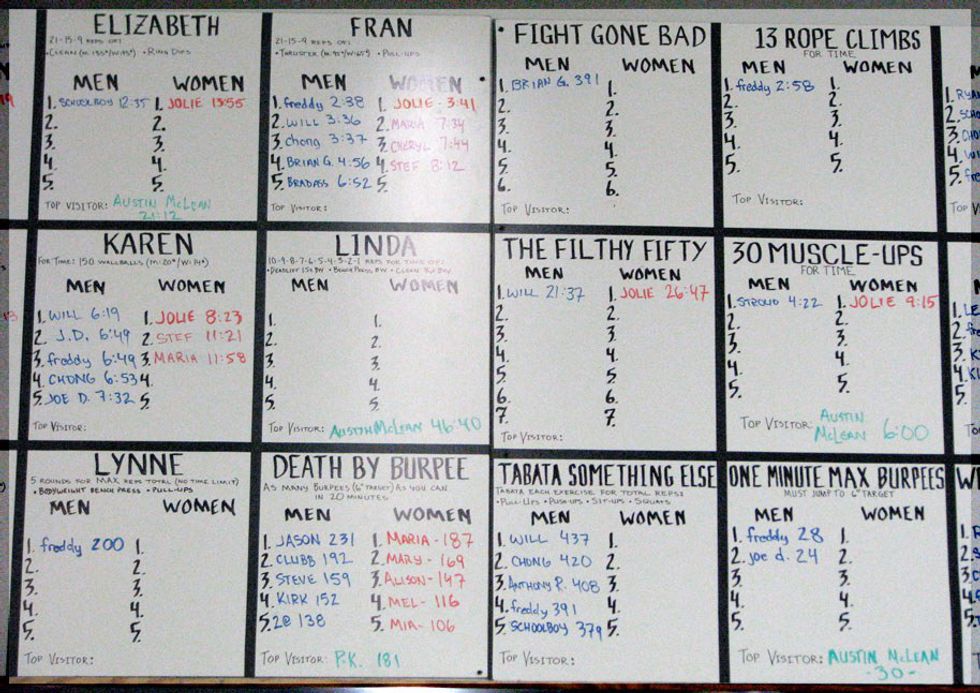 ELIZABETH
21-15-9 REPS OF:
• RING DIPS
MEN WOMEN
1. SCHOOLBOY 12:35 1. JOLIE 13:55
2. 2.
3. 3.
4. 4.
5. 5.
TOP VISITOR: AUSTIN McLEAN
21:12
FRAN
21-15-9 REPS OF:
• PULL-UPS
MEN WOMEN
1. freddy 2:38 1. JOLIE - 3:41
2. WILL 3:36 2. MARIA 7:34
3. chong 3:37 3. CHERYL 7:44
4. BRIAN G. 4:56 4. STEF 8:12
5. BRADASS 6:52 5.
TOP VISITOR:
FIGHT GONE BAD
MEN WOMEN
1. BRIAN G. 391 1.
2. 2.
3. 3.
4. 4.
5. 5.
6. 6.
TOP VISITOR:
13 ROPE CLIMBS
FOR TIME
MEN WOMEN
1. freddy 2:58 1.
2. 2.
3. 3.
4. 4.
5. 5.
TOP VISITOR:
KAREN
FOR TIME: 150 WALLBALLS (M:20#/W:14#)
MEN WOMEN
1. WILL 6:19 1. JOLIE 8:23
2. J.D. 6:49 2. STEF 11:21
3. freddy 6:49 3. MARIA 11:58
4. CHONG 6:53 4.
5. JOE D. 7:32 5.
TOP VISITOR:
LINDA
10-9-8-7-6-5-4-3-2-1 REPS FOR TIME OF:
MEN WOMEN
1. 1.
2. 2.
3. 3.
4. 4.
5. 5.
TOP VISITOR: AUSTIN McLEAN 46:40
THE FILTHY FIFTY
MEN WOMEN
1. WILL 21:37 1. JOLIE 26:47
2. 2.
3. 3.
4. 4.
5. 5.
6. 6.
7. 7.
TOP VISITOR:
30 MUSCLE-UPS
FOR TIME
MEN WOMEN
1. STROUD 4:22 1. JOLIE 9:15
2. 2.
3. 3.
4. 4.
5. 5.
TOP VISITOR: AUSTIN
McLEAN 6:00
LYNNE
5 ROUNDS FOR MAX REPS TOTAL (NO TIME LIMIT)
• BODYWEIGHT BENCH PRESS • PULL-UPS
MEN WOMEN
1. freddy 200 1.
2. 2.
3. 3.
4. 4.
5. 5.
TOP VISITOR:
DEATH BY BURPEE
AS MANY BURPEES (6" TARGET) AS YOU CAN
IN 20 MINUTES
MEN WOMEN
1. JASON 231 1. MARIA - 187
2. CLUBB 192 2. MARY - 169
3. STEVE 159 3. ALISON - 147
4. KIRK 152 4. MEL - 116
5. 138 5. MIA - 106
TOP VISITOR: P.K. 181
TABATA SOMETHING ELSE
TABATA EACH EXERCISE FOR TOTAL REPS:
• PULL-UPS • PUSH-UPS • SIT-UPS • SQUATS
MEN WOMEN
1. WILL 437 1.
2. CHONG 420 2.
3. ANTHONY R. 408 3.
4. freddy 391 4.
5. SCHOOLBOY 379 5.
TOP VISITOR:
ONE MINUTE MAX BURPEES
MUST JUMP TO 6" TARGET
MEN WOMEN
1. freddy 28 1.
2. joe d. 24 2.
3. 3.
4. 4.
5. 5.
TOP VISITOR: AUSTIN McLEAN
-30-